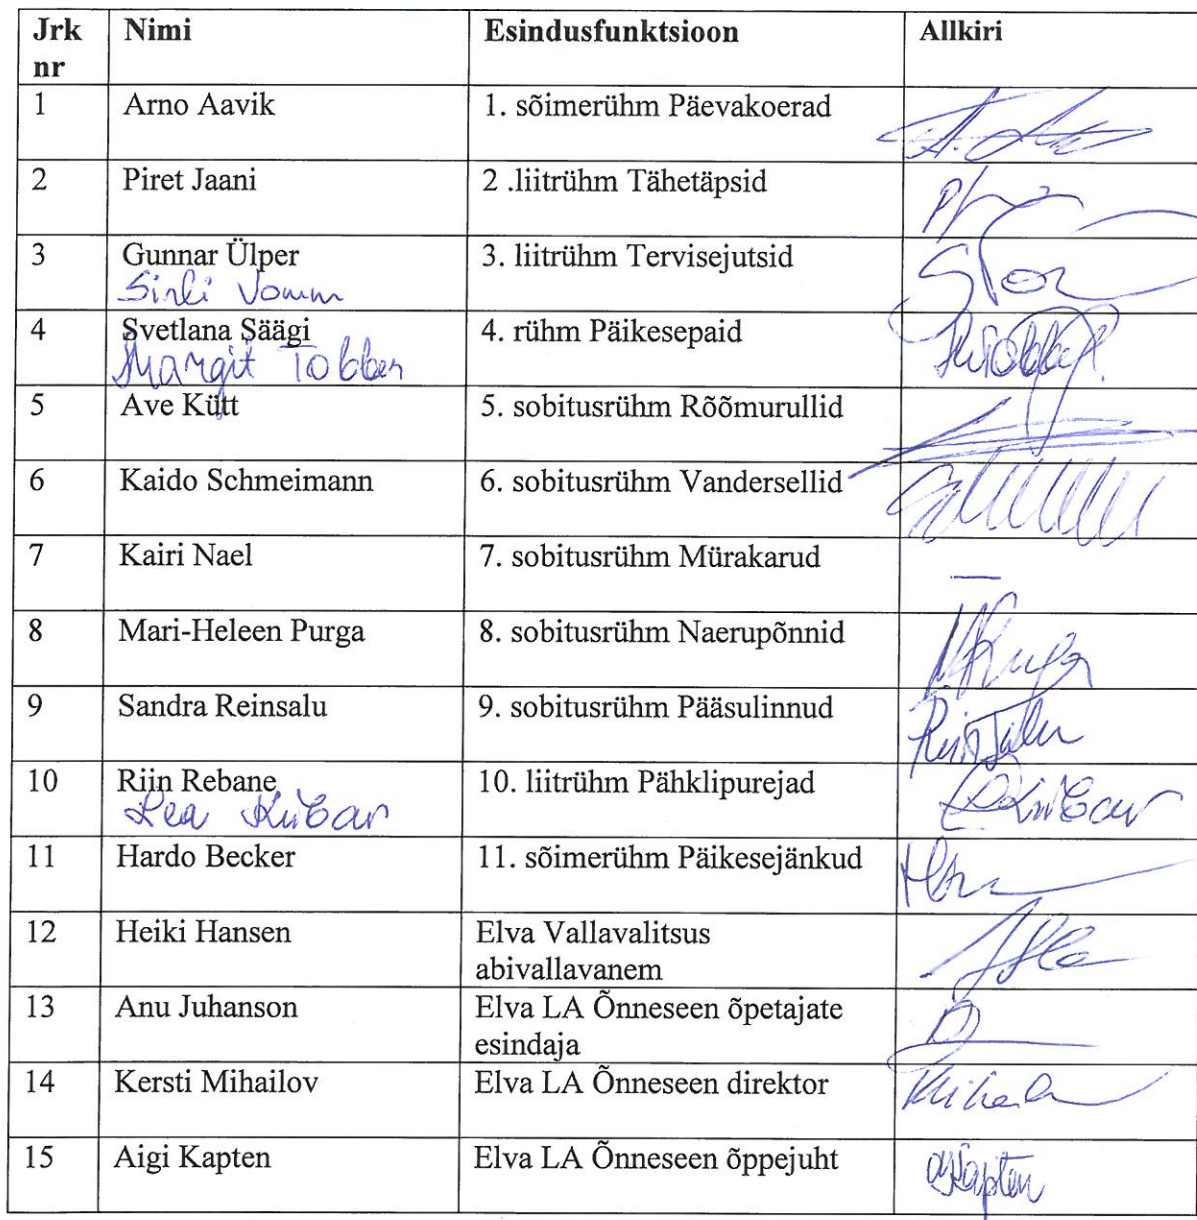 Jrk nr Nimi Esindusfunktsioon Allkiri
1 Arno Aavik 1. sõimerühm Päevakoerad
2 Piret Jaani 2 .liitrühm Tähetäpsid
3 Gunnar Ülper 3. liitrühm Tervisejutsid
Sirli Vomm
4 Svetlana Säägi 4. rühm Päikesepaid
Margit Tobber
5 Ave Kütt 5. sobitusrühm Rõõmurullid
6 Kaido Schmeimann 6. sobitusrühm Vandersellid
7 Kairi Nael 7. sobitusrühm Mürakarud
—
8 Mari-Heleen Purga 8. sobitusrühm Naerupõnnid
9 Sandra Reinsalu 9. sobitusrühm Pääsulinnud
10 Riin Rebane 10. liitrühm Pähklipurejad
Lea Kübar
11 Hardo Becker 11. sõimerühm Päikesejänkud
12 Heiki Hansen Elva Vallavalitsus
abivallavanem
13 Anu Juhanson Elva LA Õnneseen õpetajate
esindaja
14 Kersti Mihailov Elva LA Õnneseen direktor
15 Aigi Kapten Elva LA Õnneseen õppejuht